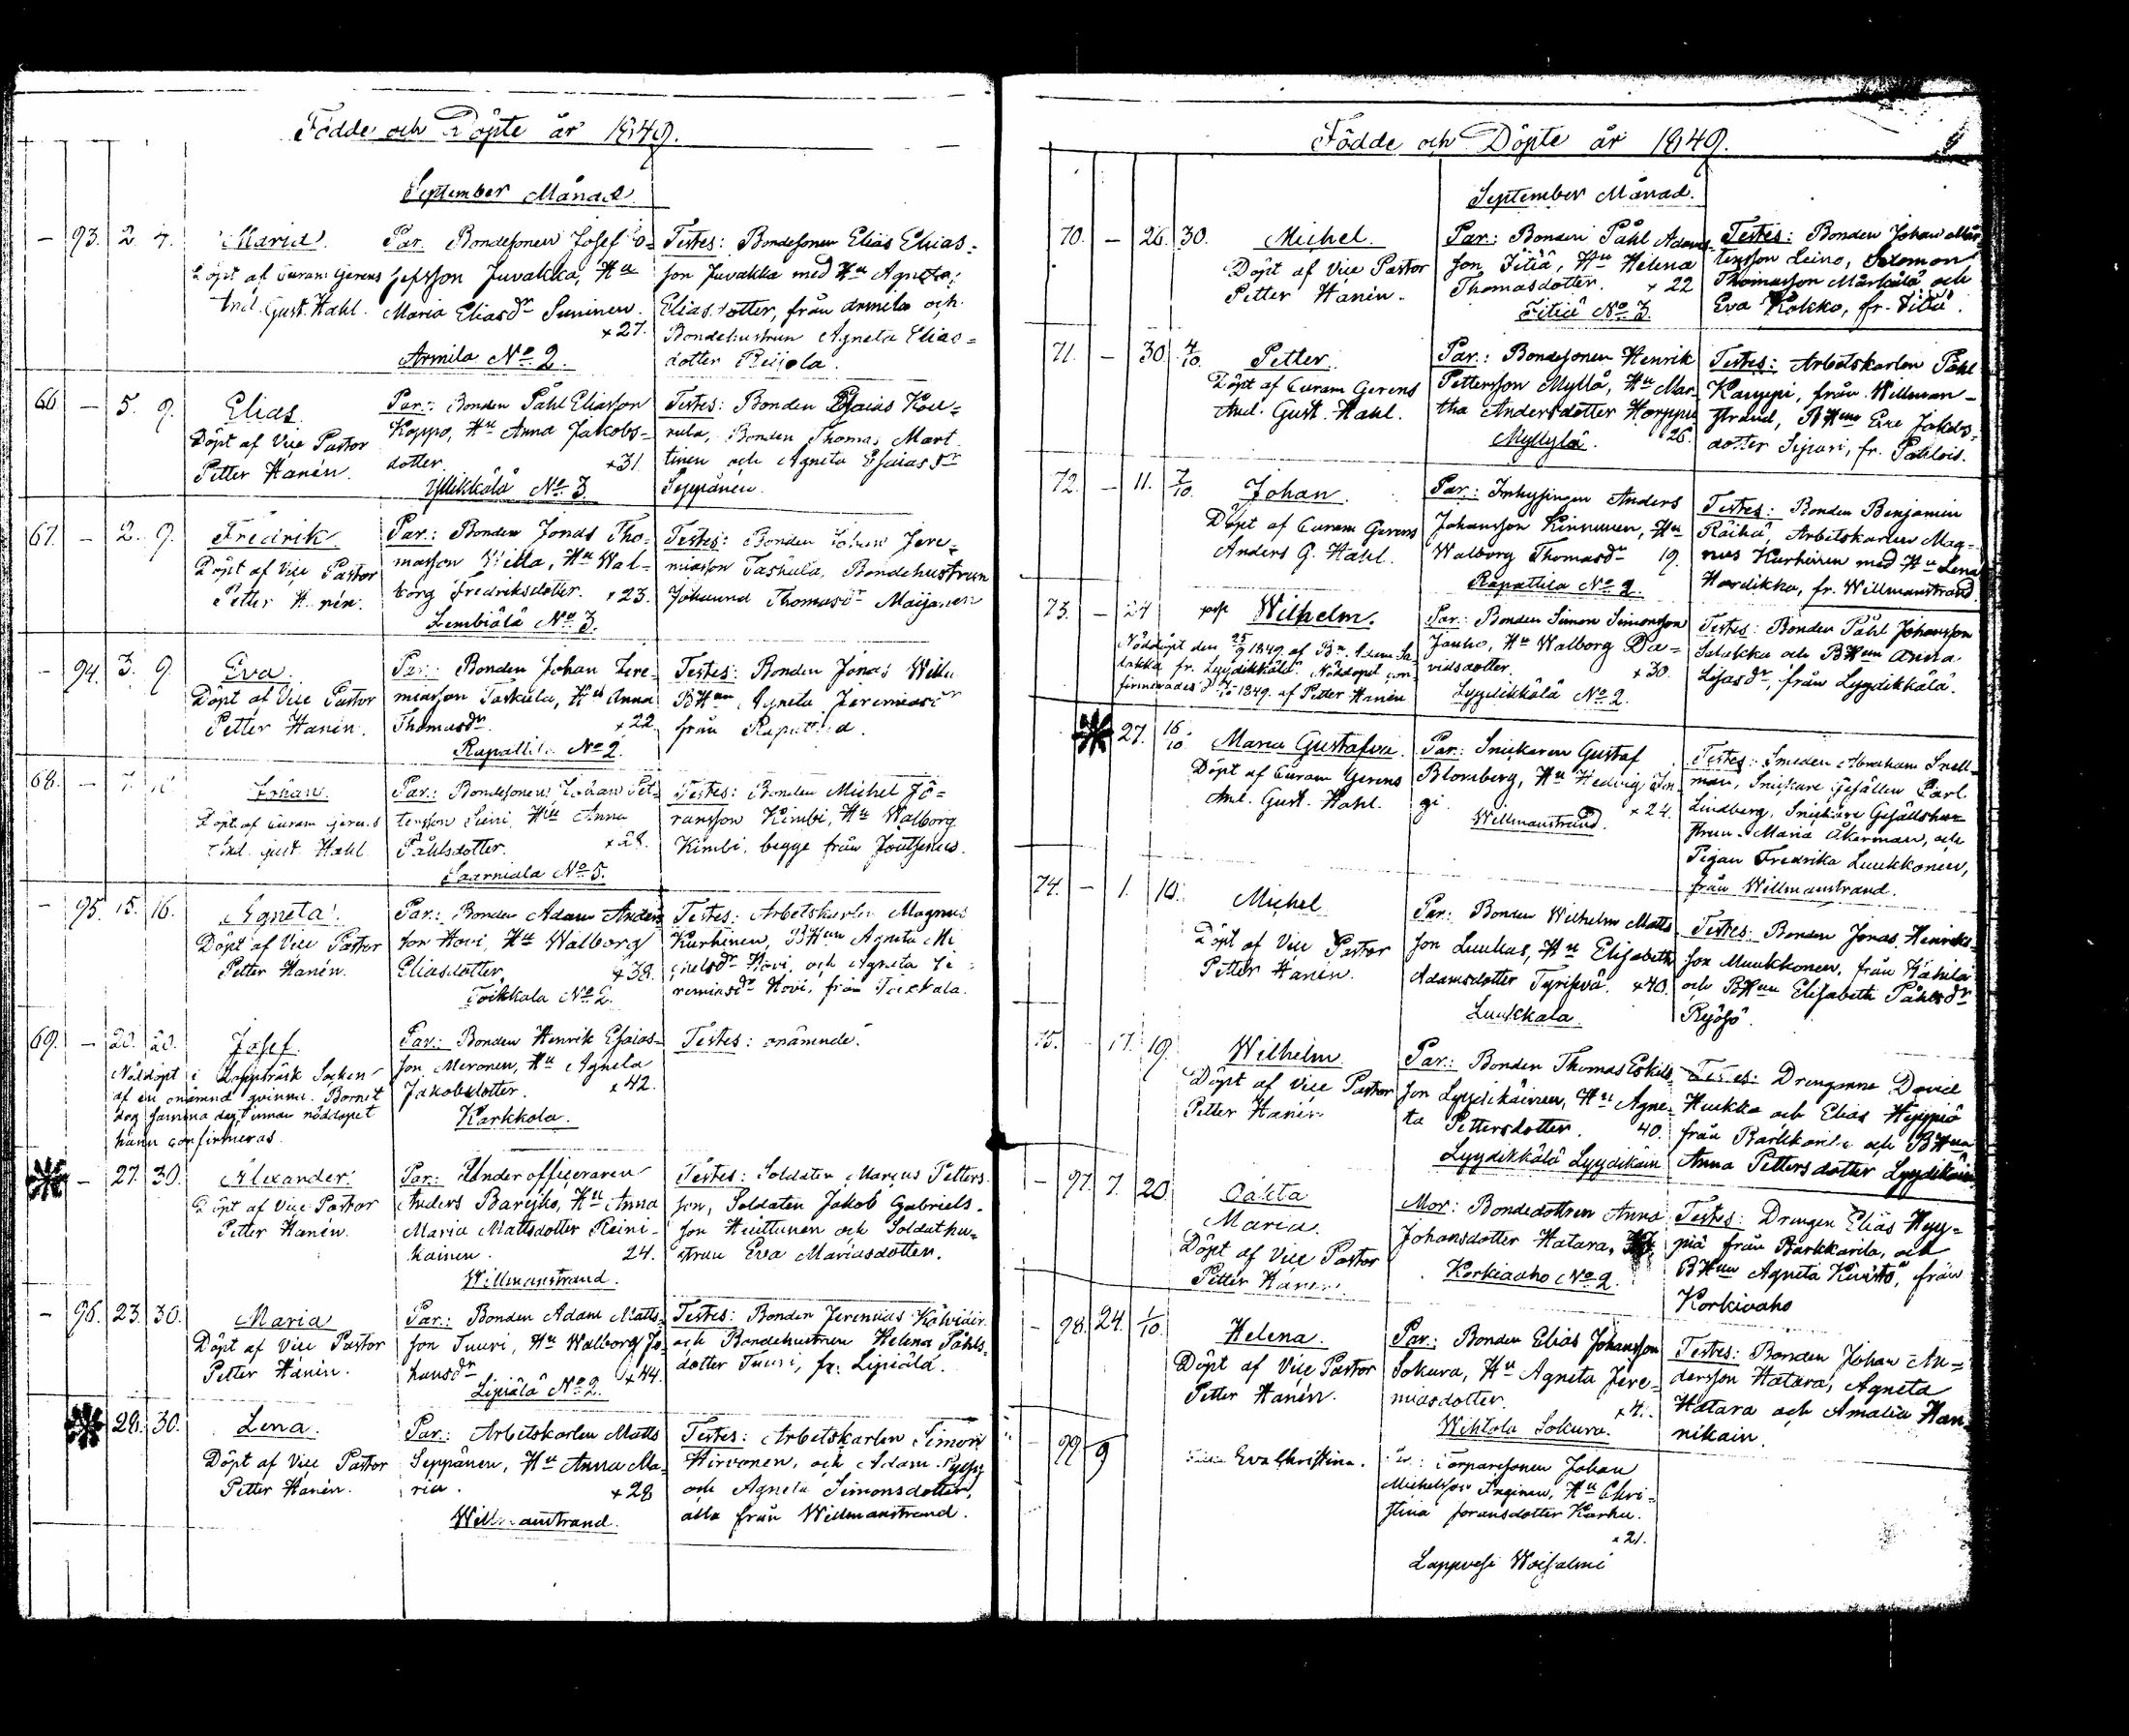 Födde och Döpte år 1849.
September Månad.
— 93. 2. 4. Maria.
Döpt af Curam Gerens
And. Gust. Hahl.
Par. Bondesonen Josef Jo-
sefsson Juvakka, Hu
Maria Eliasdr Suninen.
+27.
Armila No 2.
Testes: Bondesonen Elias Elias-
son Juvakka med Hu Agneta
Eliasdotter, från Armila och
Bondehustrun Agneta Elias-
dotter
66. — 5. 9. Elias.
Döpt af Vice Pastor
Petter Hanén.
Par.: Bonden Påhl Eliasson
Koppo, Hu Anna Jakobs-
dotter. +31.
Yllikkälä No 3.
Testes: Bonden Esaias Kou-
rula, Bonden Thomas Mart-
tinen och Agneta Esaiasdr
Seppänen.
67. — 2. 9. Fredrik.
Döpt af Vice Pastor
Petter Hanén.
Par.: Bonden Jonas Tho-
masson Willa, Hu Wal-
borg Fredriksdotter. +23.
Lembiälä No 3.
Testes: Bonden Johan Jere-
miasson Taskula, Bondehustrun
Johanna Thomasdr Maijanen
— 94. 3. 9. Eva.
Döpt af Vice Pastor
Petter Hanén.
Par.: Bonden Johan Jere-
miasson Taskula, Hu Anna
Thomasdr. +22.
Rapattila No 2.
Testes: Bonden Jonas Willa
BHun Agneta Jeremiasdr
från Rapattila.
68. — 7. Johan.
Döpt af Curam Gerens
And. Gust. Hahl.
Par.: Bondesonen Johan Pet-
tersson Suni, Hu Anna
Påhlsdotter. +28.
Saarniala No 5.
Testes: Bonden Michel Jö-
ransson Kimbi, Hu Walborg
Kimbi, begge från Joutseno.
— 95. 15. 16. Agneta.
Döpt af Vice Pastor
Petter Hanén.
Par.: Bonden Adam Anders-
son Hovi, Hu Walborg
Eliasdotter. +38.
Toikkala No 2.
Testes: Arbetskarlen Magnus
Kurhinen, BHun Agneta Mi-
chelsdr Hovi, och Agneta Je-
remiasdr Hovi, från Toikkala.
69. — 20. 20. Josef.
Nöddöpt i Lappträsk Socken
af en onämnd qvinna. Barnet
dog samma dag, innan nöddopet
hann confirmeras.
Par.: Bonden Henrik Esaias-
son Meronen, Hu Agneta
Jakobsdotter. +42.
Karkkola.
Testes: onämnde.
— 27. 30. Alexander.
Döpt af Vice Pastor
Petter Hanén.
Par.: Underofficeraren
Anders Barejko, Hu Anna
Maria Mattsdotter Reini-
kainen. 24.
Willmanstrand.
Testes: Soldaten Marcus Petters-
son, Soldaten Jakob Gabriels-
son Huttunen och Soldathu-
strun Eva Mariasdotter.
— 96. 23. 30. Maria
Döpt af Vice Pastor
Petter Hanén.
Par.: Bonden Adam Matts-
son Tuuri, Hu Walborg Jo-
hansdr +44.
Lipiälä No 2.
Testes: Bonden Jeremias
och Bondehustrun Helena Påhls-
dotter Tuuri, fr. Lipiälä.
28. 30. Lena.
Döpt af Vice Pastor
Petter Hanén.
Par.: Arbetskarlen Matts
Seppänen, Hu Anna Ma-
ria. +28
Willmanstrand.
Testes: Arbetskarlen Simon
Hirvonen, och Adam Pyssy
och Agneta Simonsdotter,
alla från Willmanstrand.
Födde och Döpte år 1849.
September Månad.
70. — 26. 30. Michel.
Döpt af Vice Pastor
Petter Hanén.
Par.: Bonden Påhl Adams-
son Titiä, Hu Helena
Thomasdotter. +22
Titiä No 3.
Testes: Bonden Johan Mår-
tensson Leino, Salomon
Thomasson Märkälä och
Eva Kokko, fr. Titiä.
71. — 30. 4/10. Petter.
Döpt af Curam Gerens
And. Gust. Hahl.
Par.: Bondesonen Henrik
Pettersson Myllä, Hu Mar-
tha Andersdotter Horppu
26.
Myllylä.
Testes: Arbetskarlen Påhl
Kauppi, från Willman-
strand, BHun Eva Jakobs-
dotter Sipari, fr.
72. — 11. 7/10. Johan.
Döpt af Curam Gerens
Anders G. Hahl.
Par.: Inhysingen Anders
Johansson Kinnunen, Hu
Walborg Thomasdr 19.
Rapattila No 2.
Testes: Bonden Benjamin
Räihä, Arbetskarlen Mag-
nus Kurhinen med Hu Lena
Hordikka, fr. Willmanstrand.
73. — 24 Wilhelm.
Nöddöpt den 25/9 1849. af Bn. Adam Sa-
lakka fr. Lyydikkälä. Nöddopet con-
firmerades d 1849. af Petter Hanén
Par.: Bonden Simon Simonsson
Jauho, Hu Walborg Da-
vidsdotter. +30.
Lyydikkälä No 2.
Testes: Bonden Påhl Johansson
Salakka och BHun Anna
Lisasdr, från Lyydikkälä.
27. 16/10. Maria Gustafva.
Döpt af Curam Gerens
And. Gust. Hahl.
Par.: Snickaren Gustaf
Blomberg, Hu Hedvig
gi. +24.
Willmanstrand.
Testes: Smeden Abraham Snell-
man, Snickare Gesällen Carl
Lindberg, Snickare Gesällshu-
strun Maria Åkerman, och
Pigan Fredrika Luukkonen,
från Willmanstrand.
74. — 1. 14. Michel
Döpt af Vice Pastor
Petter Hanén.
Par.: Bonden Wilhelm Matts-
son Luukas, Hu Elisabeth
Adamsdotter Tyrisevä. +40.
Luukkala
Testes: Bonden Jonas Henriks-
son Muukkonen, från Hanila
och BHun Elisabeth Påhlsdr
Ryösö.
75. 17. 19. Wilhelm.
Döpt af Vice Pastor
Petter Hanén
Par.: Bonden Thomas Eskils-
son Lyydikäinen, Hu Agne-
ta Pettersdotter. 40.
Lyydikkälä Lyydikäin
Testes: Drengarne David
Hukka och Elias Hyppiä
från Barkkarila och BHun
Anna Pettersdotter Lyydikäin
— 97. 7. 20
Maria.
Döpt af Vice Pastor
Petter Hanén.
Mor: Bondedottren Anna
Johansdotter Hatara,
Korkiaaho No 2.
Testes: Drengen Elias Hyp-
piä från Barkkarila, och
BHun Agneta Kuisto, från
Korkivaho
— 98. 24. 1/10. Helena.
Döpt af Vice Pastor
Petter Hanén.
Par.: Bonden Elias Johansson
Sokura, Hu Agneta Jere-
miasdotter.
Wihtola Sokura.
Testes: Bonden Johan An-
dersson Hatara, Agneta
Hatara och Amalia Han-
nikain.
99. 9 Eva Christina.
Par.: Torparesonen Johan
Michelsson Inginen, Hu Chri-
stina Joransdotter Karhu.
+21.
Lappvesi Woisalmi